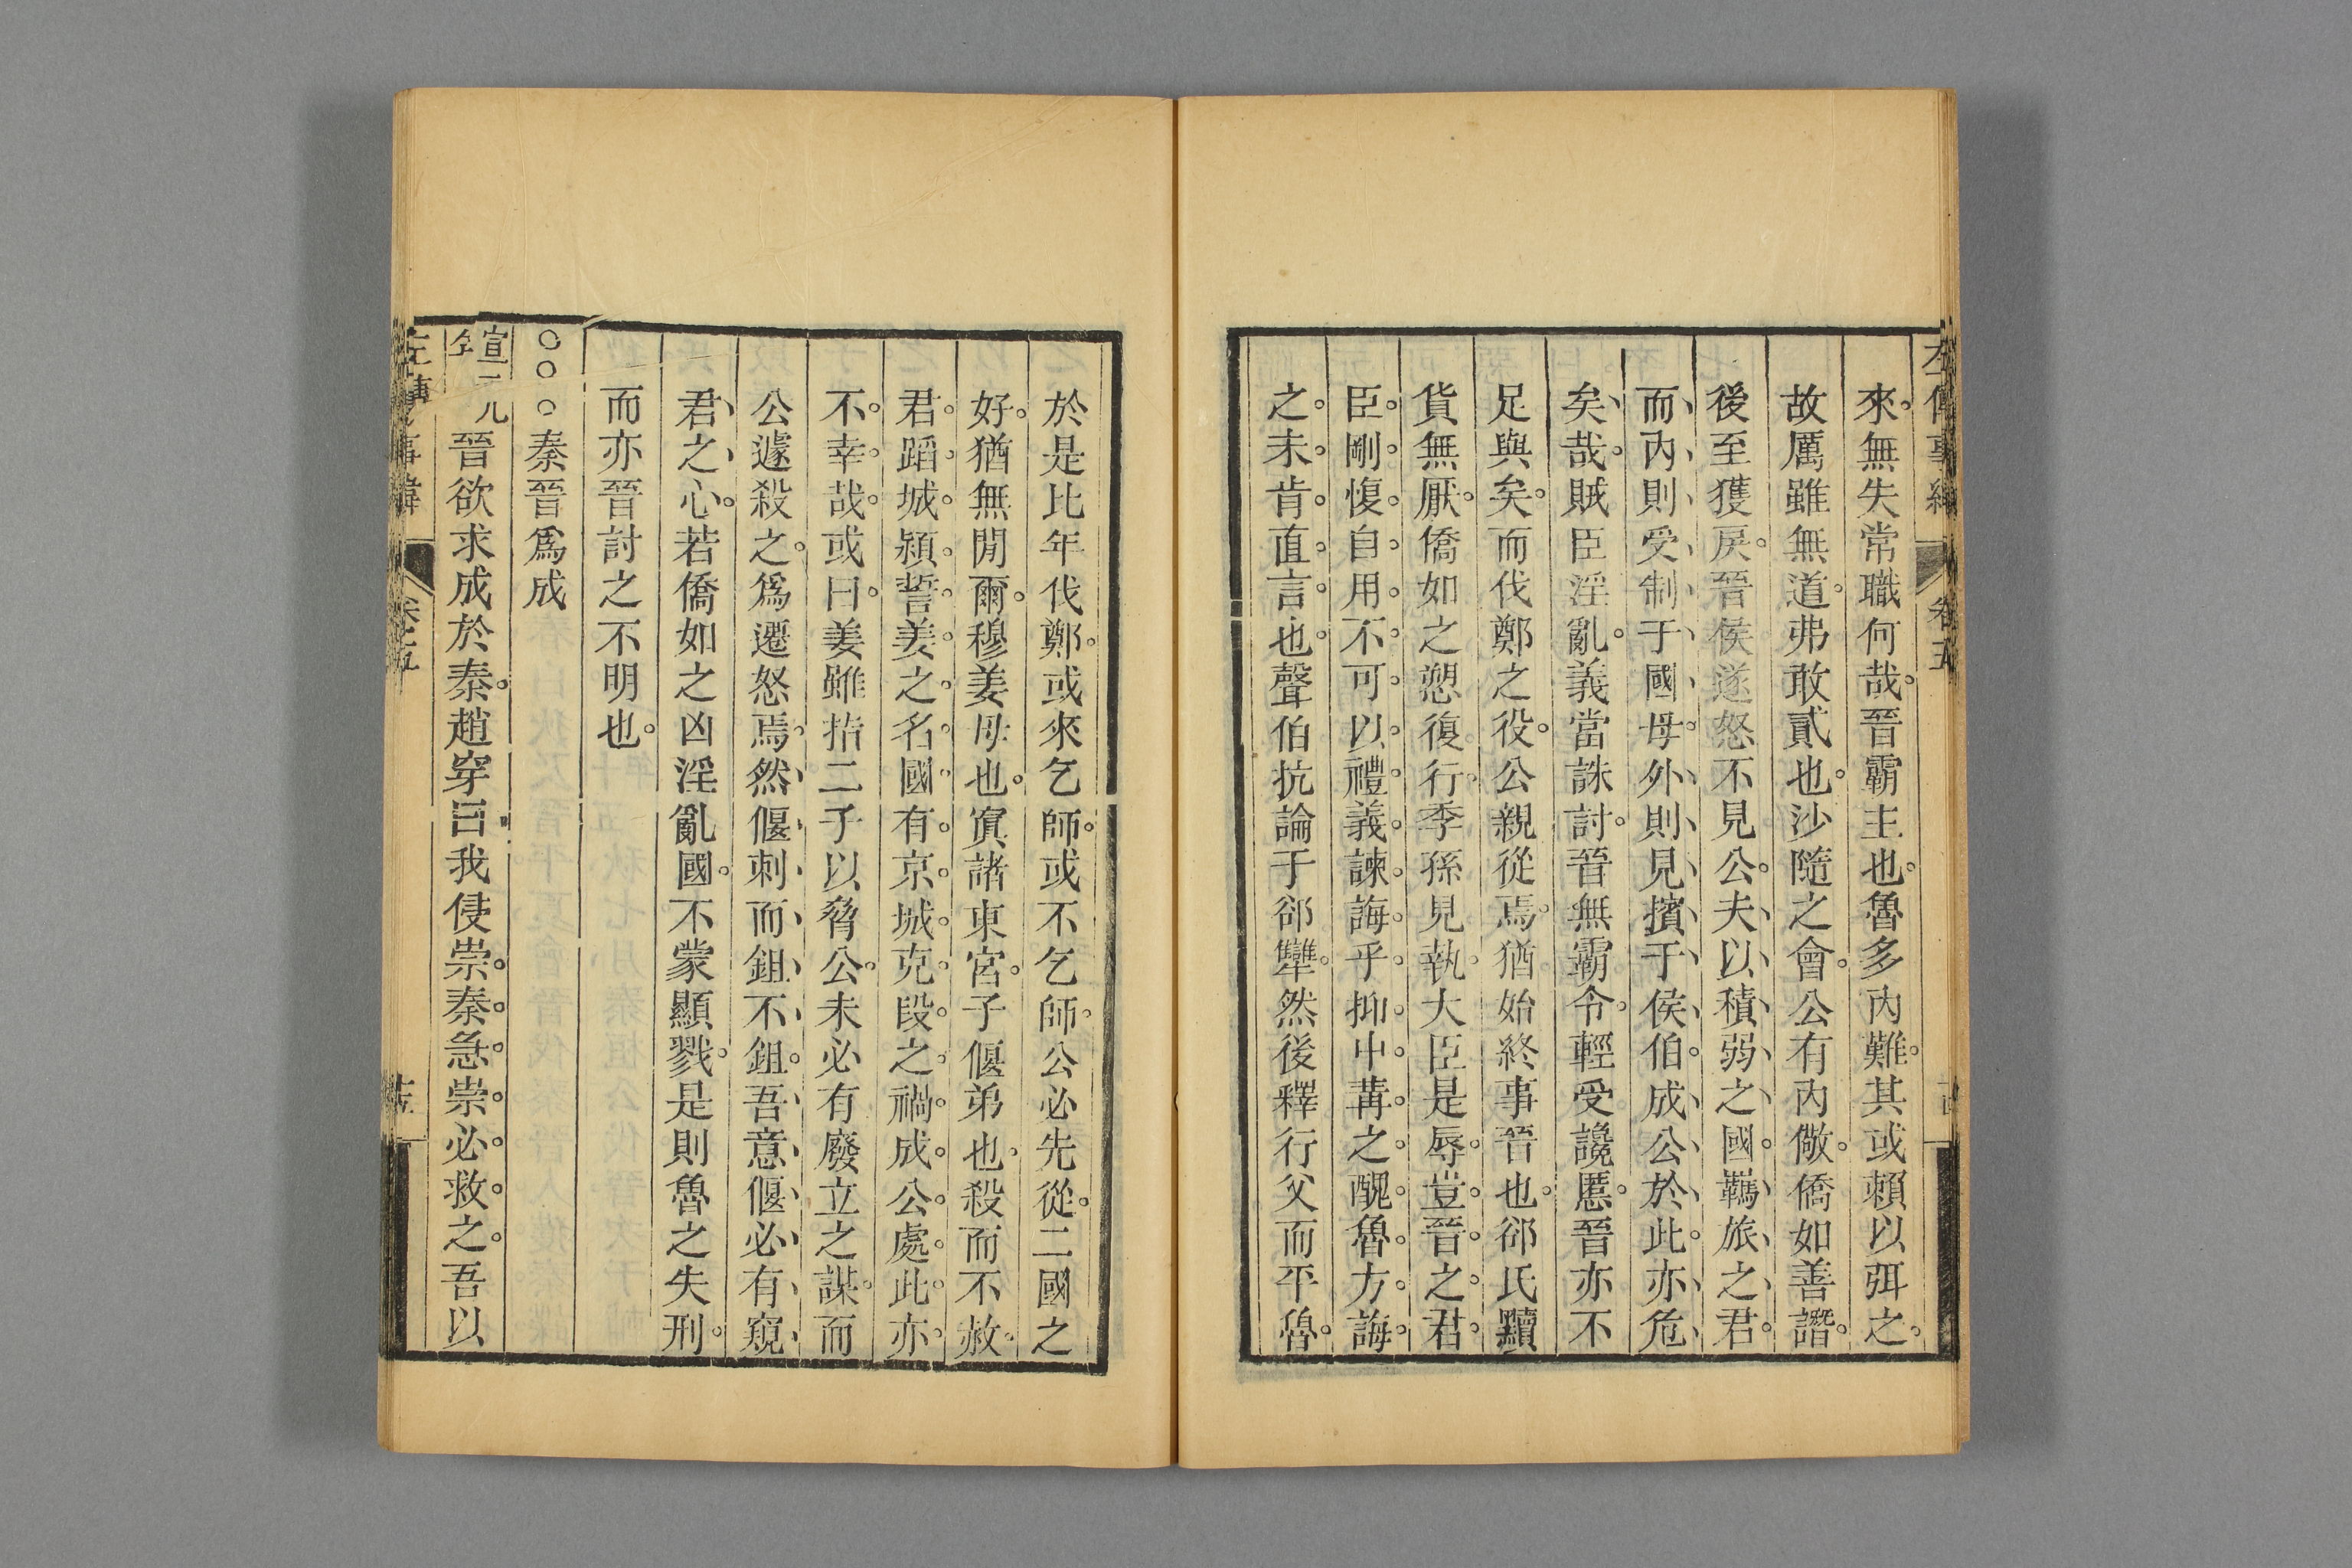 左傳事緯
卷五
來無失常職何哉晉霸主也魯多內難其或賴以弭之
故厲雖無道弗敢貳也沙隨之會公有內儆僑如善譖
後至獲戾晉侯遂怒不見公夫以積弱之國羈旅之君
而內則受制于國母外則見擯于侯伯成公於此亦危
矣哉賊臣淫亂義當誅討晉無霸令輕受讒慝晉亦不
足與矣而伐鄭之役公親從焉猶始終事晉也郤氏黷
貨無厭僑如之愬復行季孫見執大臣是辱豈晉之君
臣剛愎自用不可以禮義諫誨乎抑中冓之醜魯方誨
之未肯直言也聲伯抗論于郤犫然後釋行父而平魯
於是比年伐鄭或來乞師或不乞師公必先從二國之
好猶無閒爾穆姜母也寘諸東宮子偃弟也殺而不赦
君蹈城潁誓姜之名國有京城克段之禍成公處此亦
不幸哉或曰姜雖指二子以脅公未必有廢立之謀而
公遽殺之爲遷怒焉然偃刺而鉏不鉏吾意偃必有窺
君之心若僑如之凶淫亂國不蒙顯戮是則魯之失刑
而亦晉討之不明也
○○○秦晉爲成
宣元年
晉欲求成於秦趙穿曰我侵崇秦急崇必救之吾以
左傳事緯
卷五